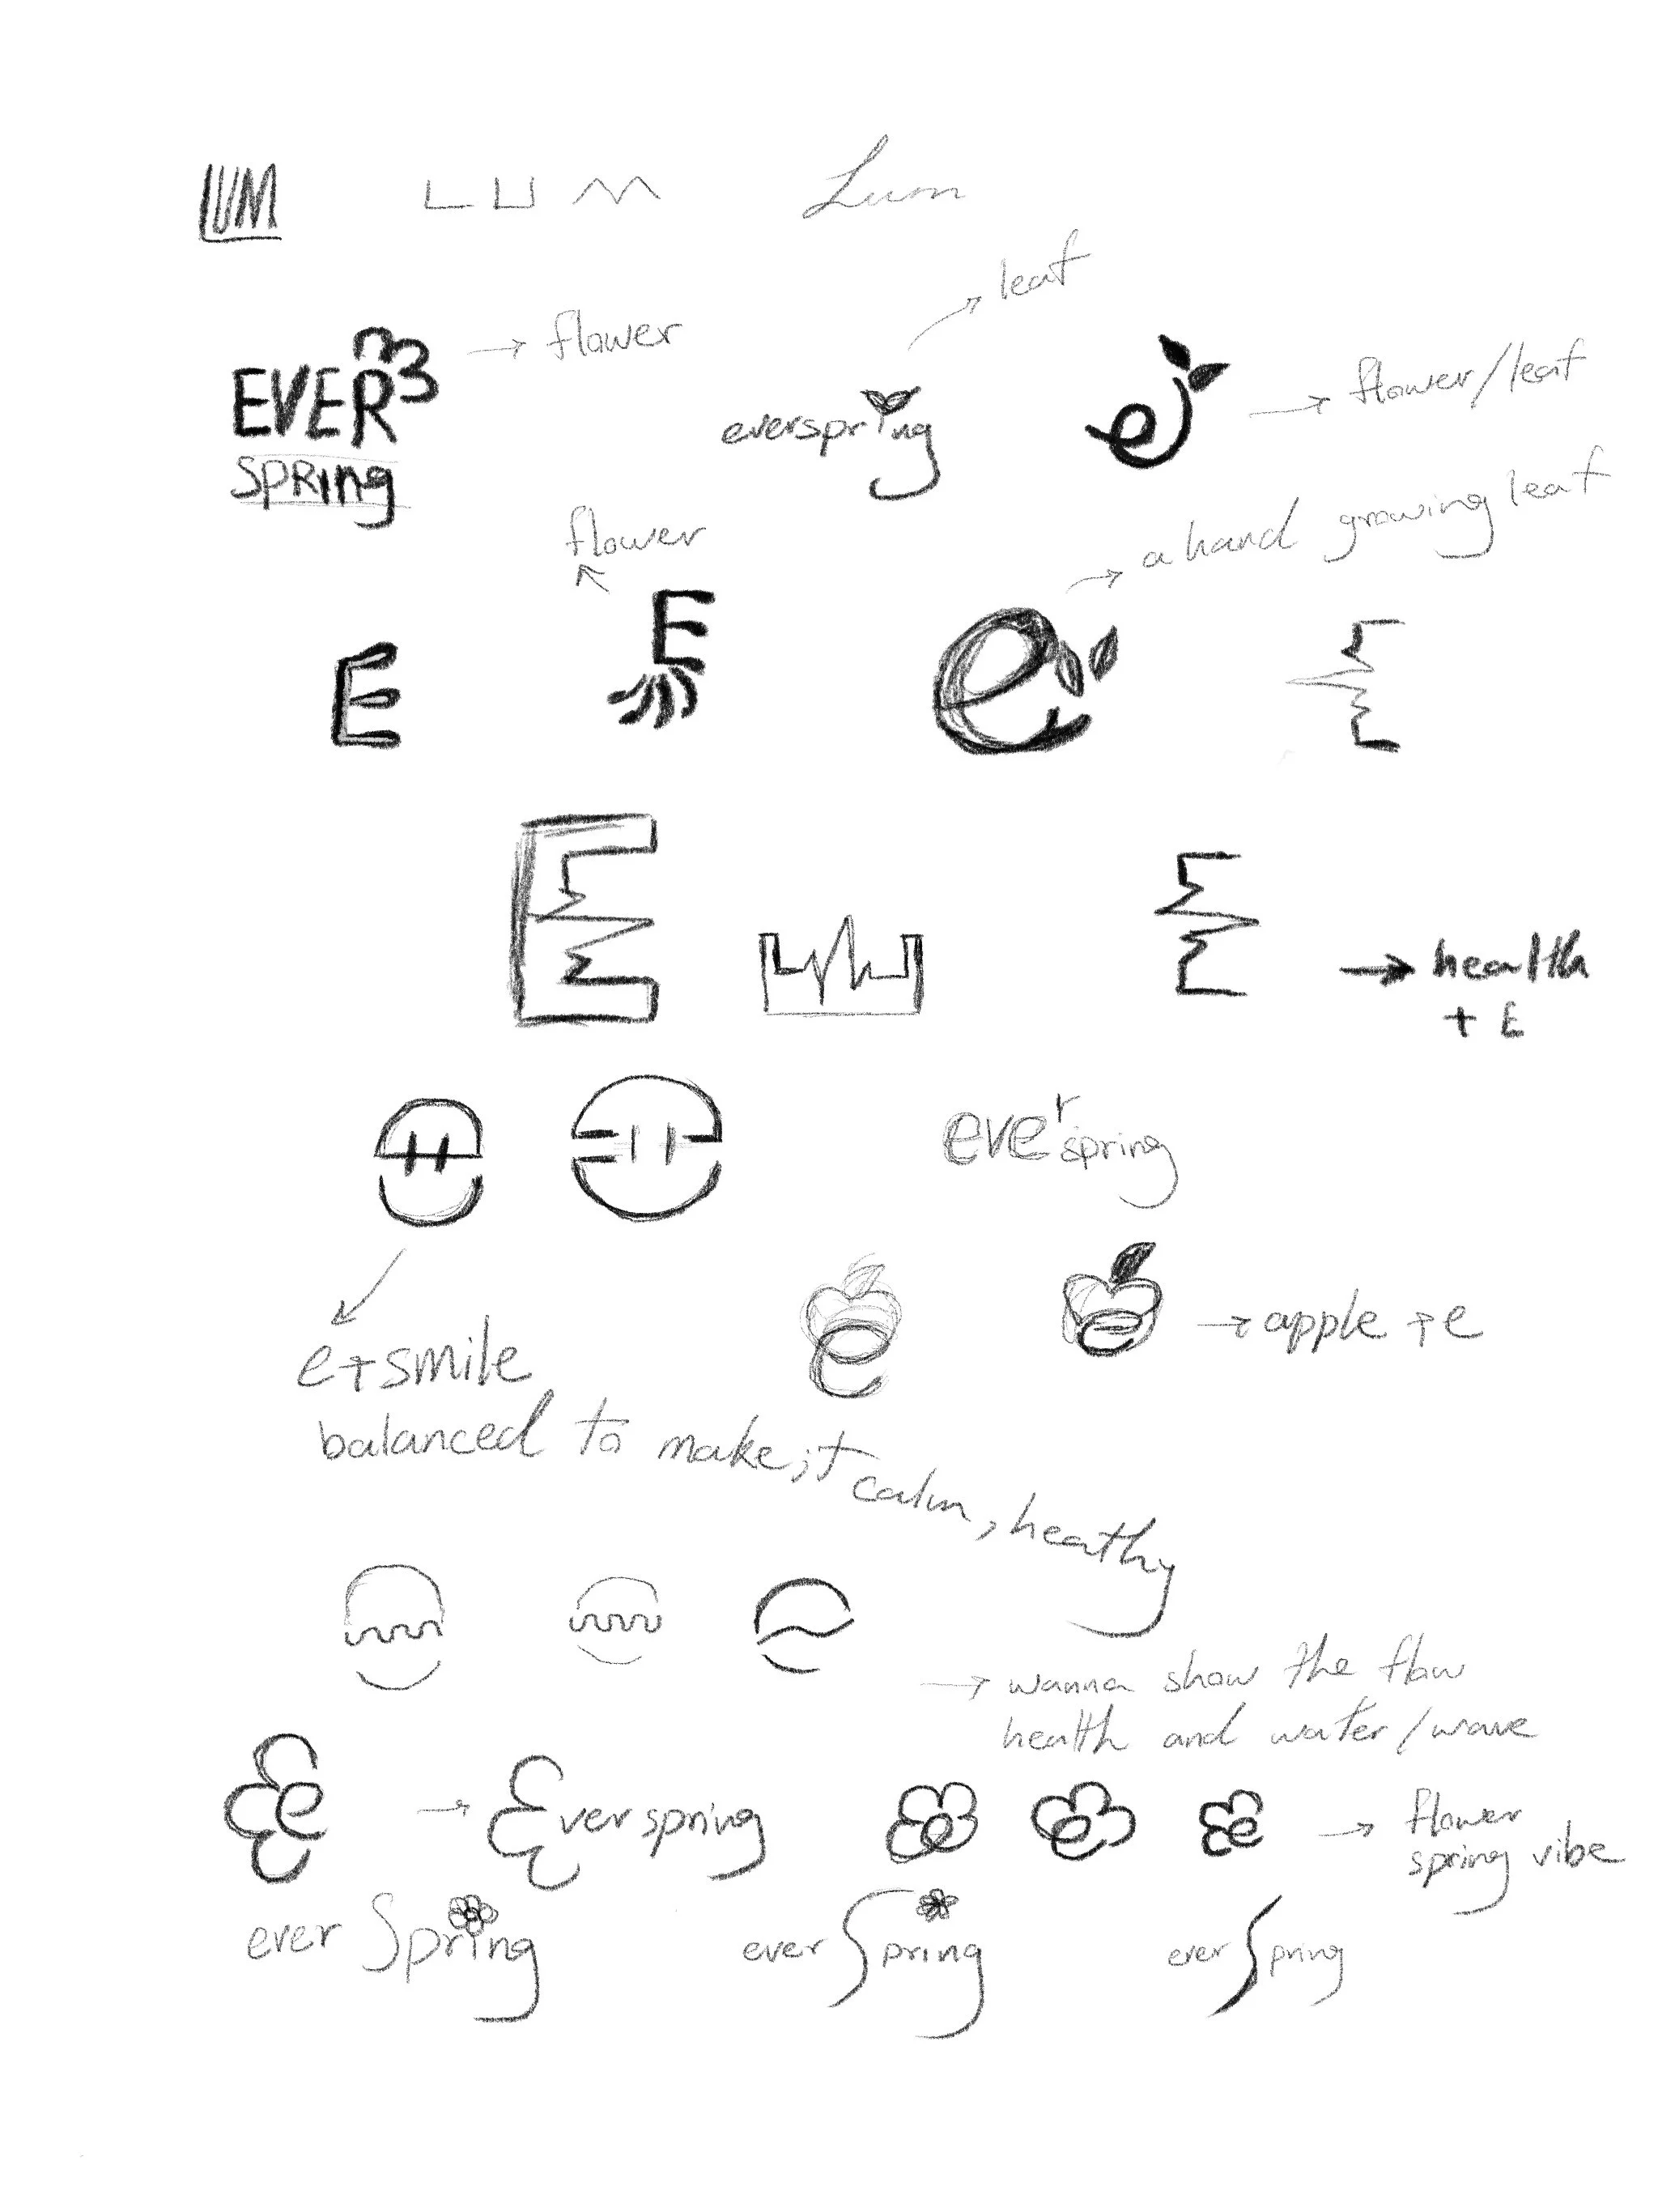 LUM
LUM
Lum
leaf
EVER
SPRIng
→ flower
everspring
e
→ flower/leaf
flower
→ a hand growing leaf
E
E
e
E
E
E
E
→ health
+ E
ever
spring
e+smile
balanced to make it calm, heathy
e
e
→ apple + e
→ wanna show the flow
health and water/wave
Ee
→ Everspring
e
e
e
→ flower
spring vibe
ever Spring
ever Spring
ever Spring